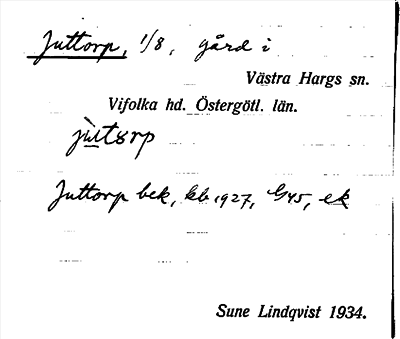 Juttorp, 1/8, gård i
Västra Hargs sn.
Vifolka hd. Östergötl. län.
jùtorp
Juttorp bek, kb 1927, G45, ek
Sune Lindqvist 1934.